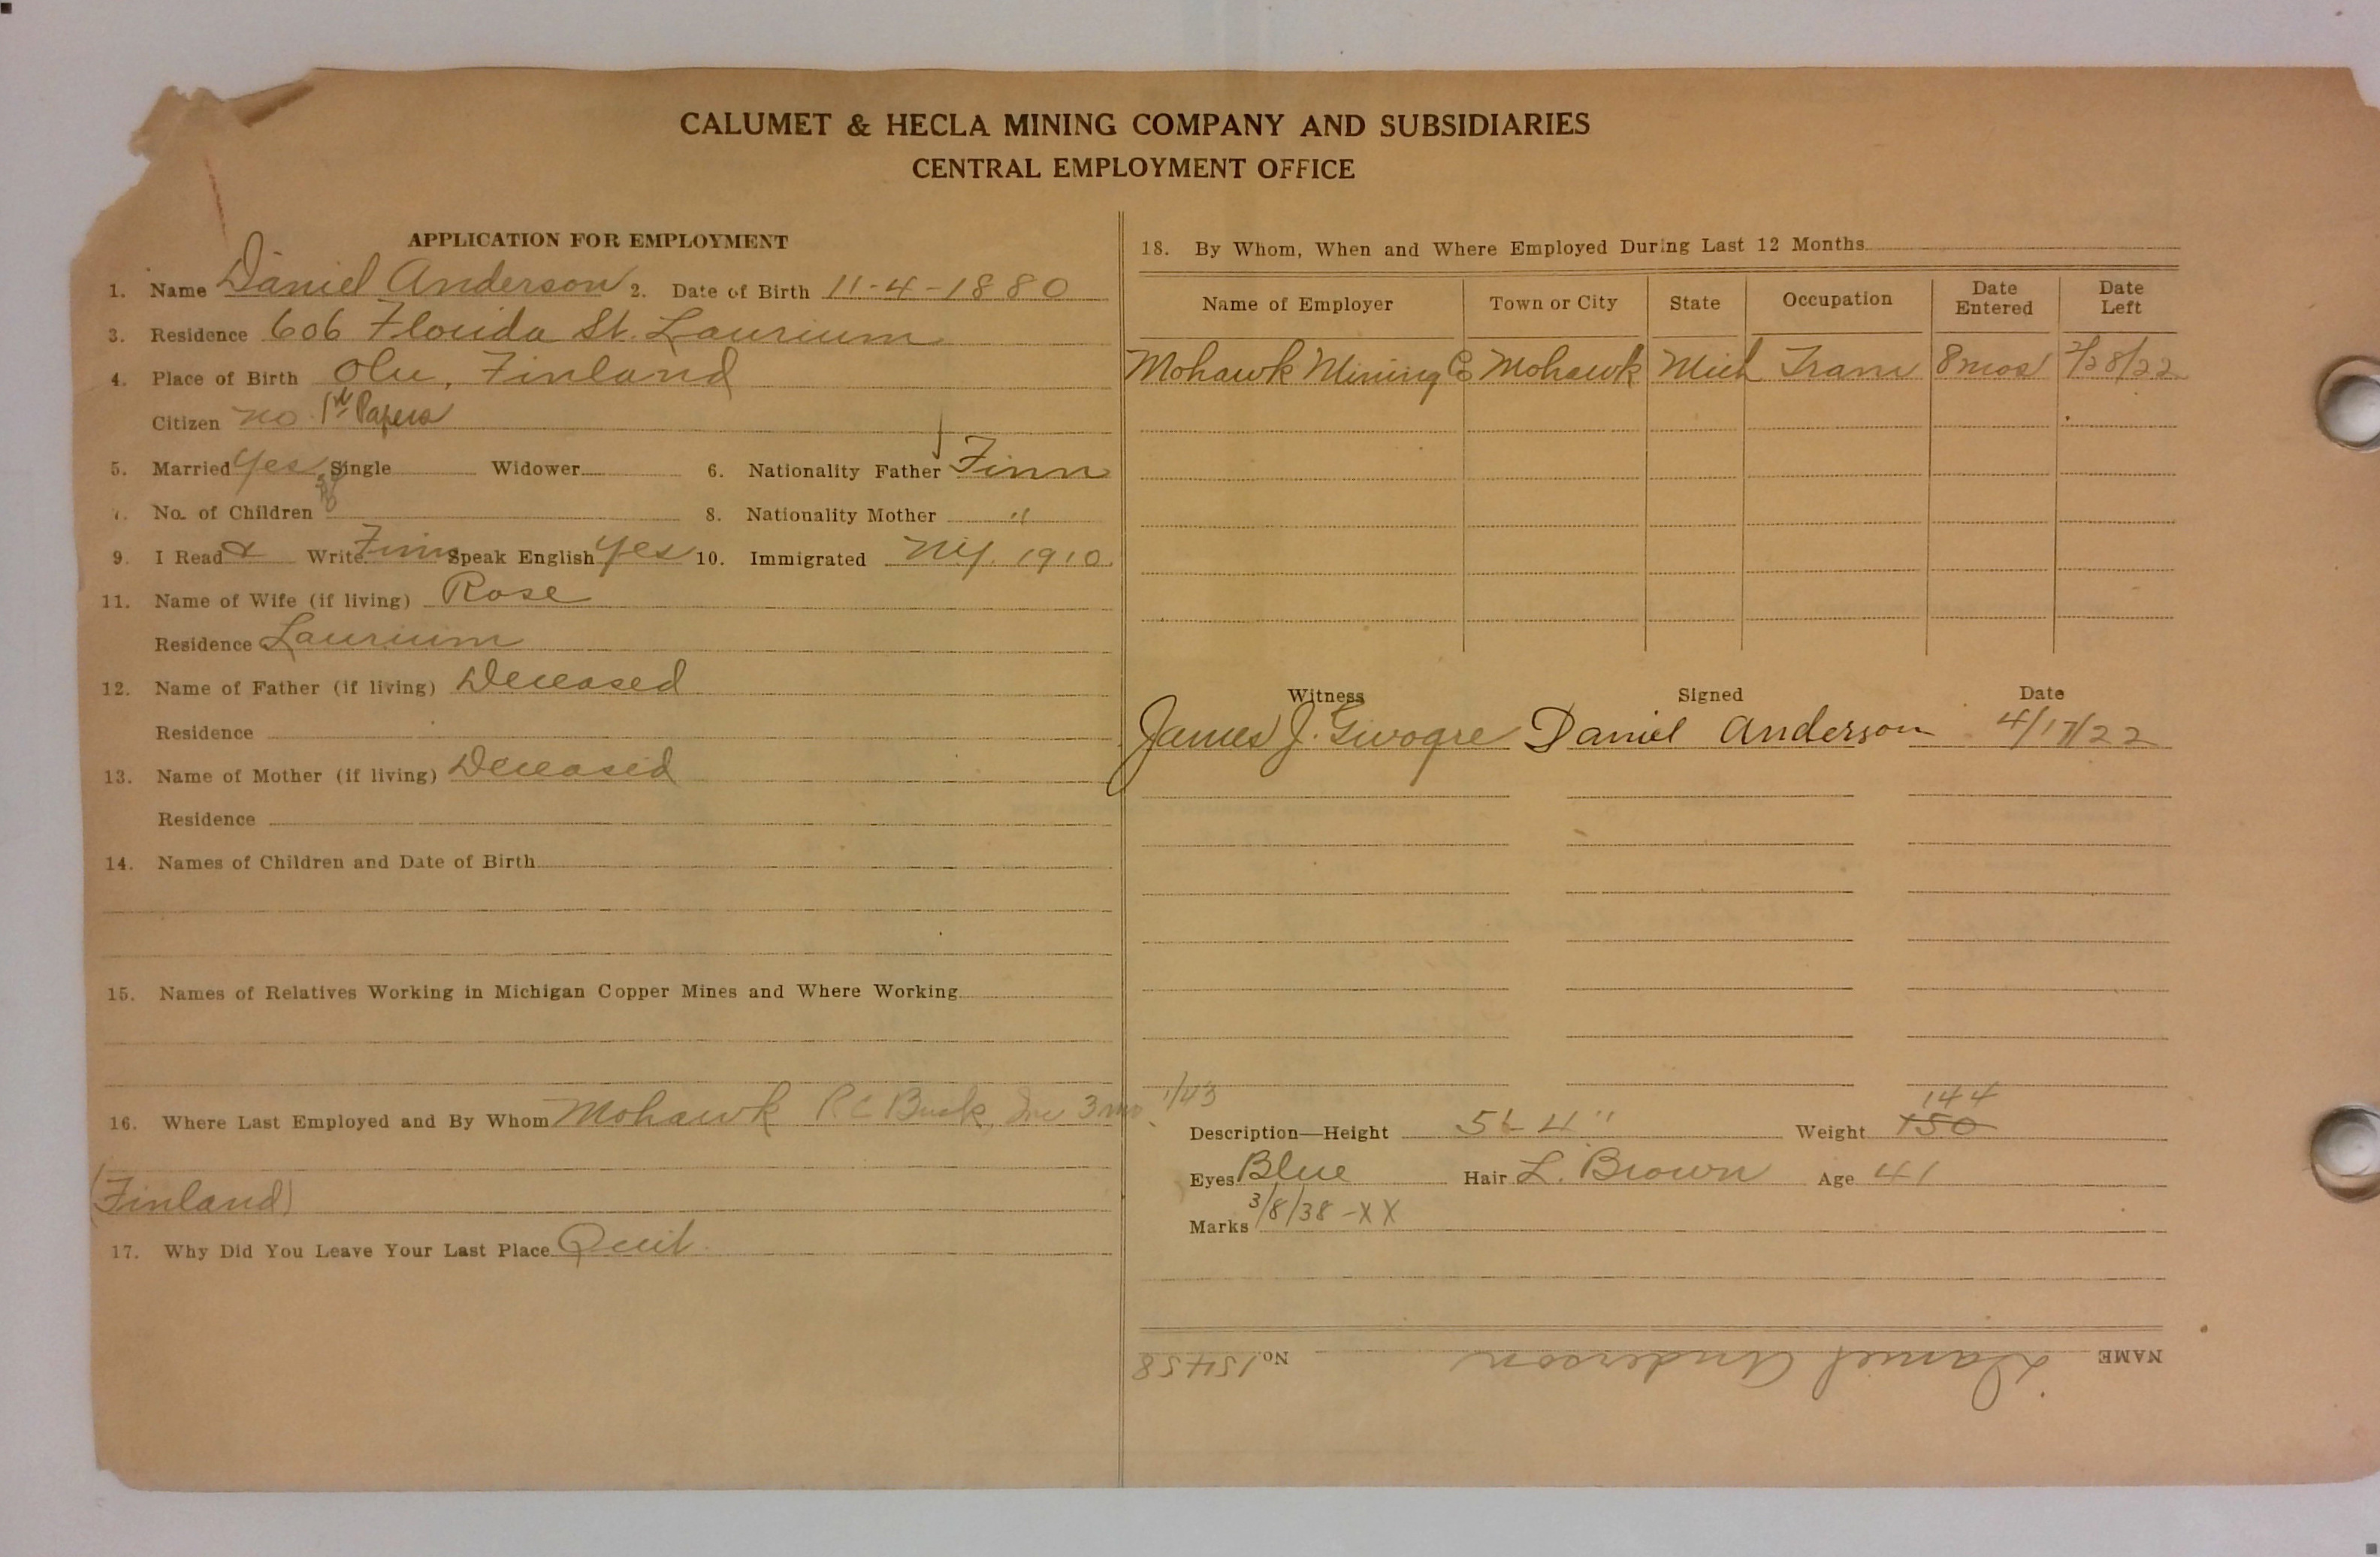 CALUMET & HECLA MINING COMPANY AND SUBSIDIARIES
CENTRAL EMPLOYMENT OFFICE
APPLICATION FOR EMPLOYMENT
1. Name Daniel Anderson 2. Date of Birth 11-4-1880
3. Residence 606 Florida St. Laurium
4. Place of Birth Olu, Finland
Citizen no 1st Papers
5. Married Yes Single Widower
6. Nationality Father Finn
7. No. of Children
8. Nationality Mother "
9. I Read & Write Finn Speak English Yes 10. Immigrated NY. 1910
11. Name of Wife (if living) Rose
Residence Laurium
12. Name of Father (if living) Deceased
Residence
13. Name of Mother (if living) Deceased
Residence
14. Names of Children and Date of Birth
15. Names of Relatives Working in Michigan Copper Mines and Where Working
16. Where Last Employed and By Whom Mohawk 3 1/43
(Finland)
17. Why Did You Leave Your Last Place Quit
18. By Whom, When and Where Employed During Last 12 Months
Name of Employer Town or City State Occupation Date Entered Date Left
Mohawk Mining Co Mohawk Mich Tram 8 mos 2/28/22
Witness Signed Date
James J. Daniel Anderson 4/17/22
144
Description—Height 5'-4" Weight 150
Eyes Blue Hair L. Brown Age 41
Marks 3/8/38 -XX
NAME Daniel Anderson No. 15458